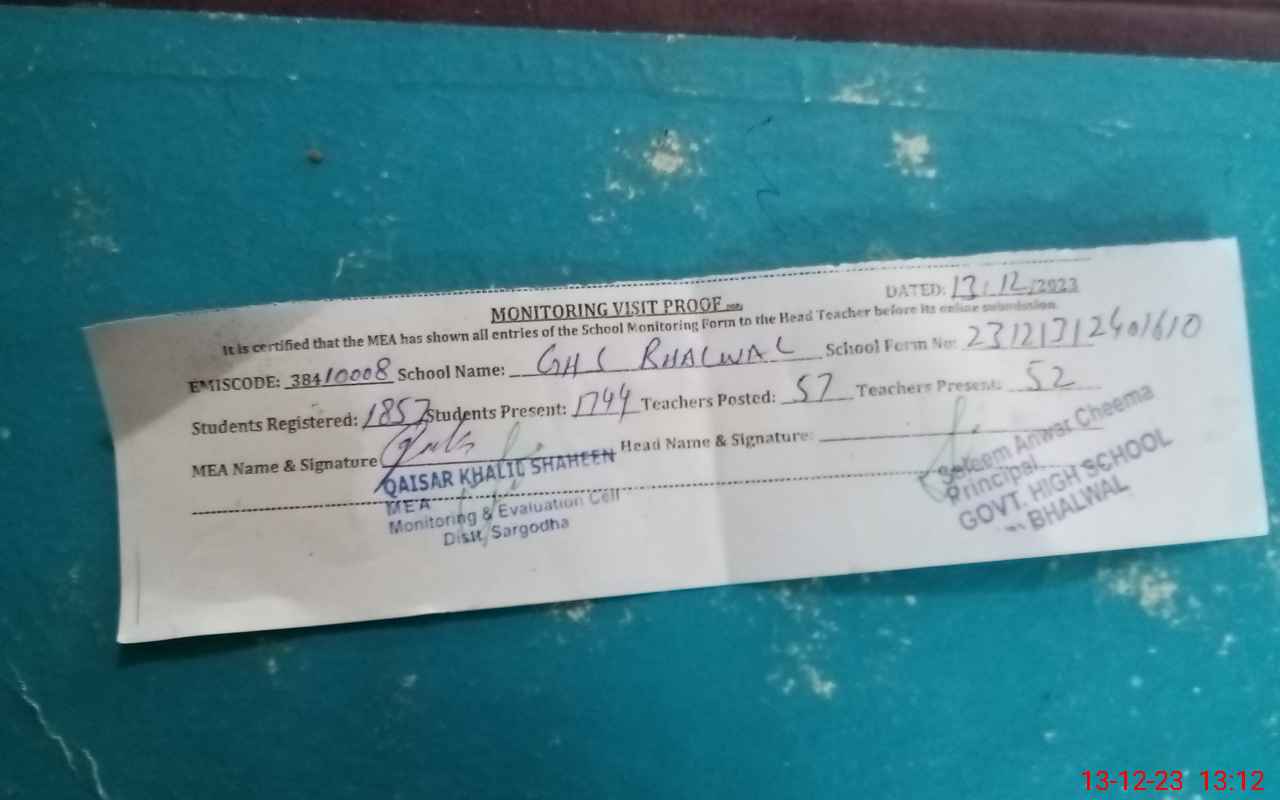 MONITORING VISIT PROOF
DATED: 13/12/2023
It is certified that the MEA has shown all entries of the School Monitoring Form to the Head Teacher before its online submission.
EMISCODE: 38410008 School Name: GHS BHALWAL School Form No:
Students Registered: 1857 Students Present: 1744 Teachers Posted: 57 Teachers Present: 52
MEA Name & Signature Head Name & Signature:
QAISAR KHALIL SHAHEEN
MEA
Monitoring & Evaluation Cell
Distt, Sargodha
Saleem Anwar Cheema
Principal
GOVT. HIGH SCHOOL
BHALWAL
13-12-23 13:12